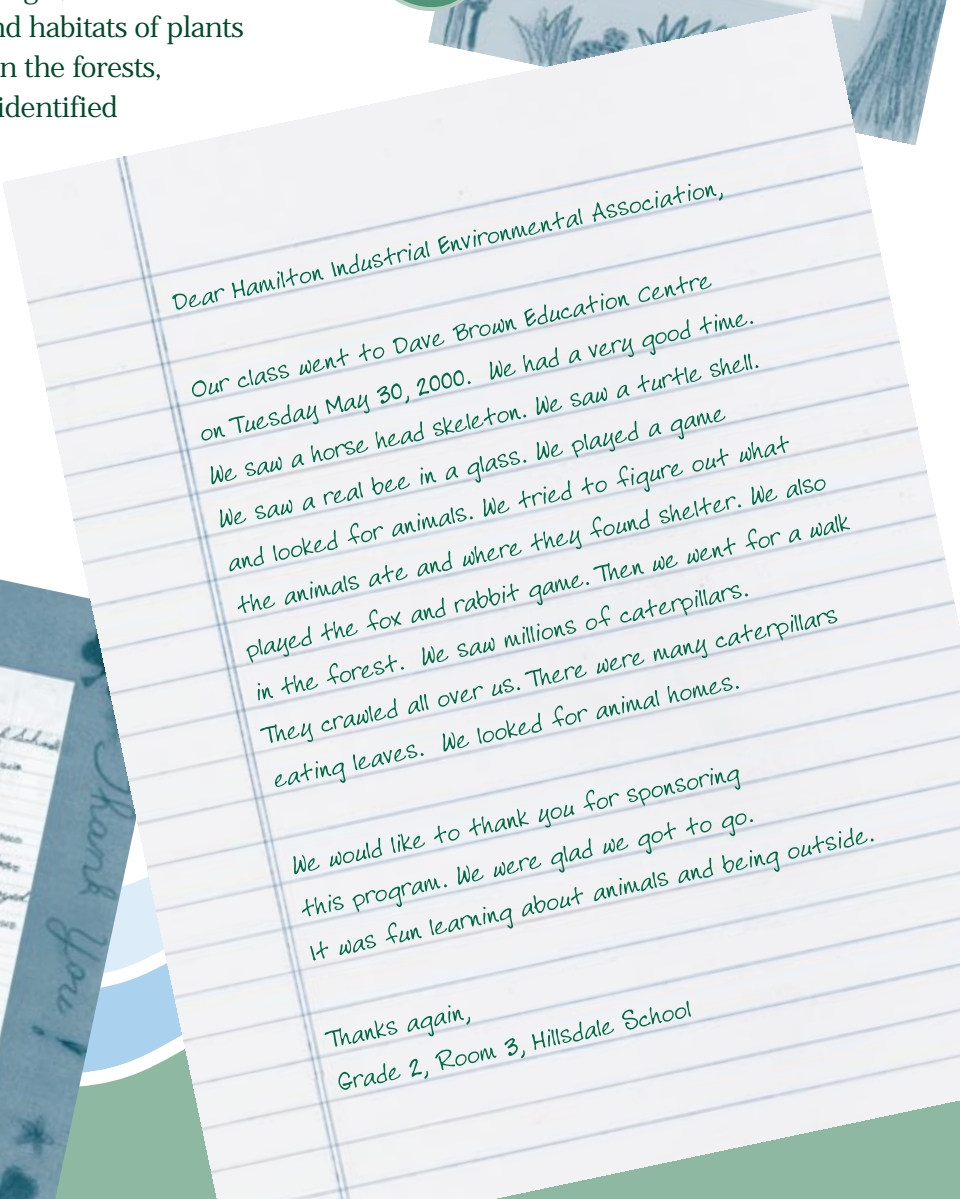 nd habitats of plants
n the forests,
identified
Dear Hamilton Industrial Environmental Association,
Our class went to Dave Brown Education Centre
on Tuesday May 30, 2000. We had a very good time.
We saw a horse head skeleton. We saw a turtle shell.
We saw a real bee in a glass. We played a game
and looked for animals. We tried to figure out what
the animals ate and where they found shelter. We also
played the fox and rabbit game. Then we went for a walk
in the forest. We saw millions of caterpillars.
They crawled all over us. There were many caterpillars
eating leaves. We looked for animal homes.
We would like to thank you for sponsoring
this program. We were glad we got to go.
It was fun learning about animals and being outside.
Thanks again,
Grade 2, Room 3, Hillsdale School
Thank You!